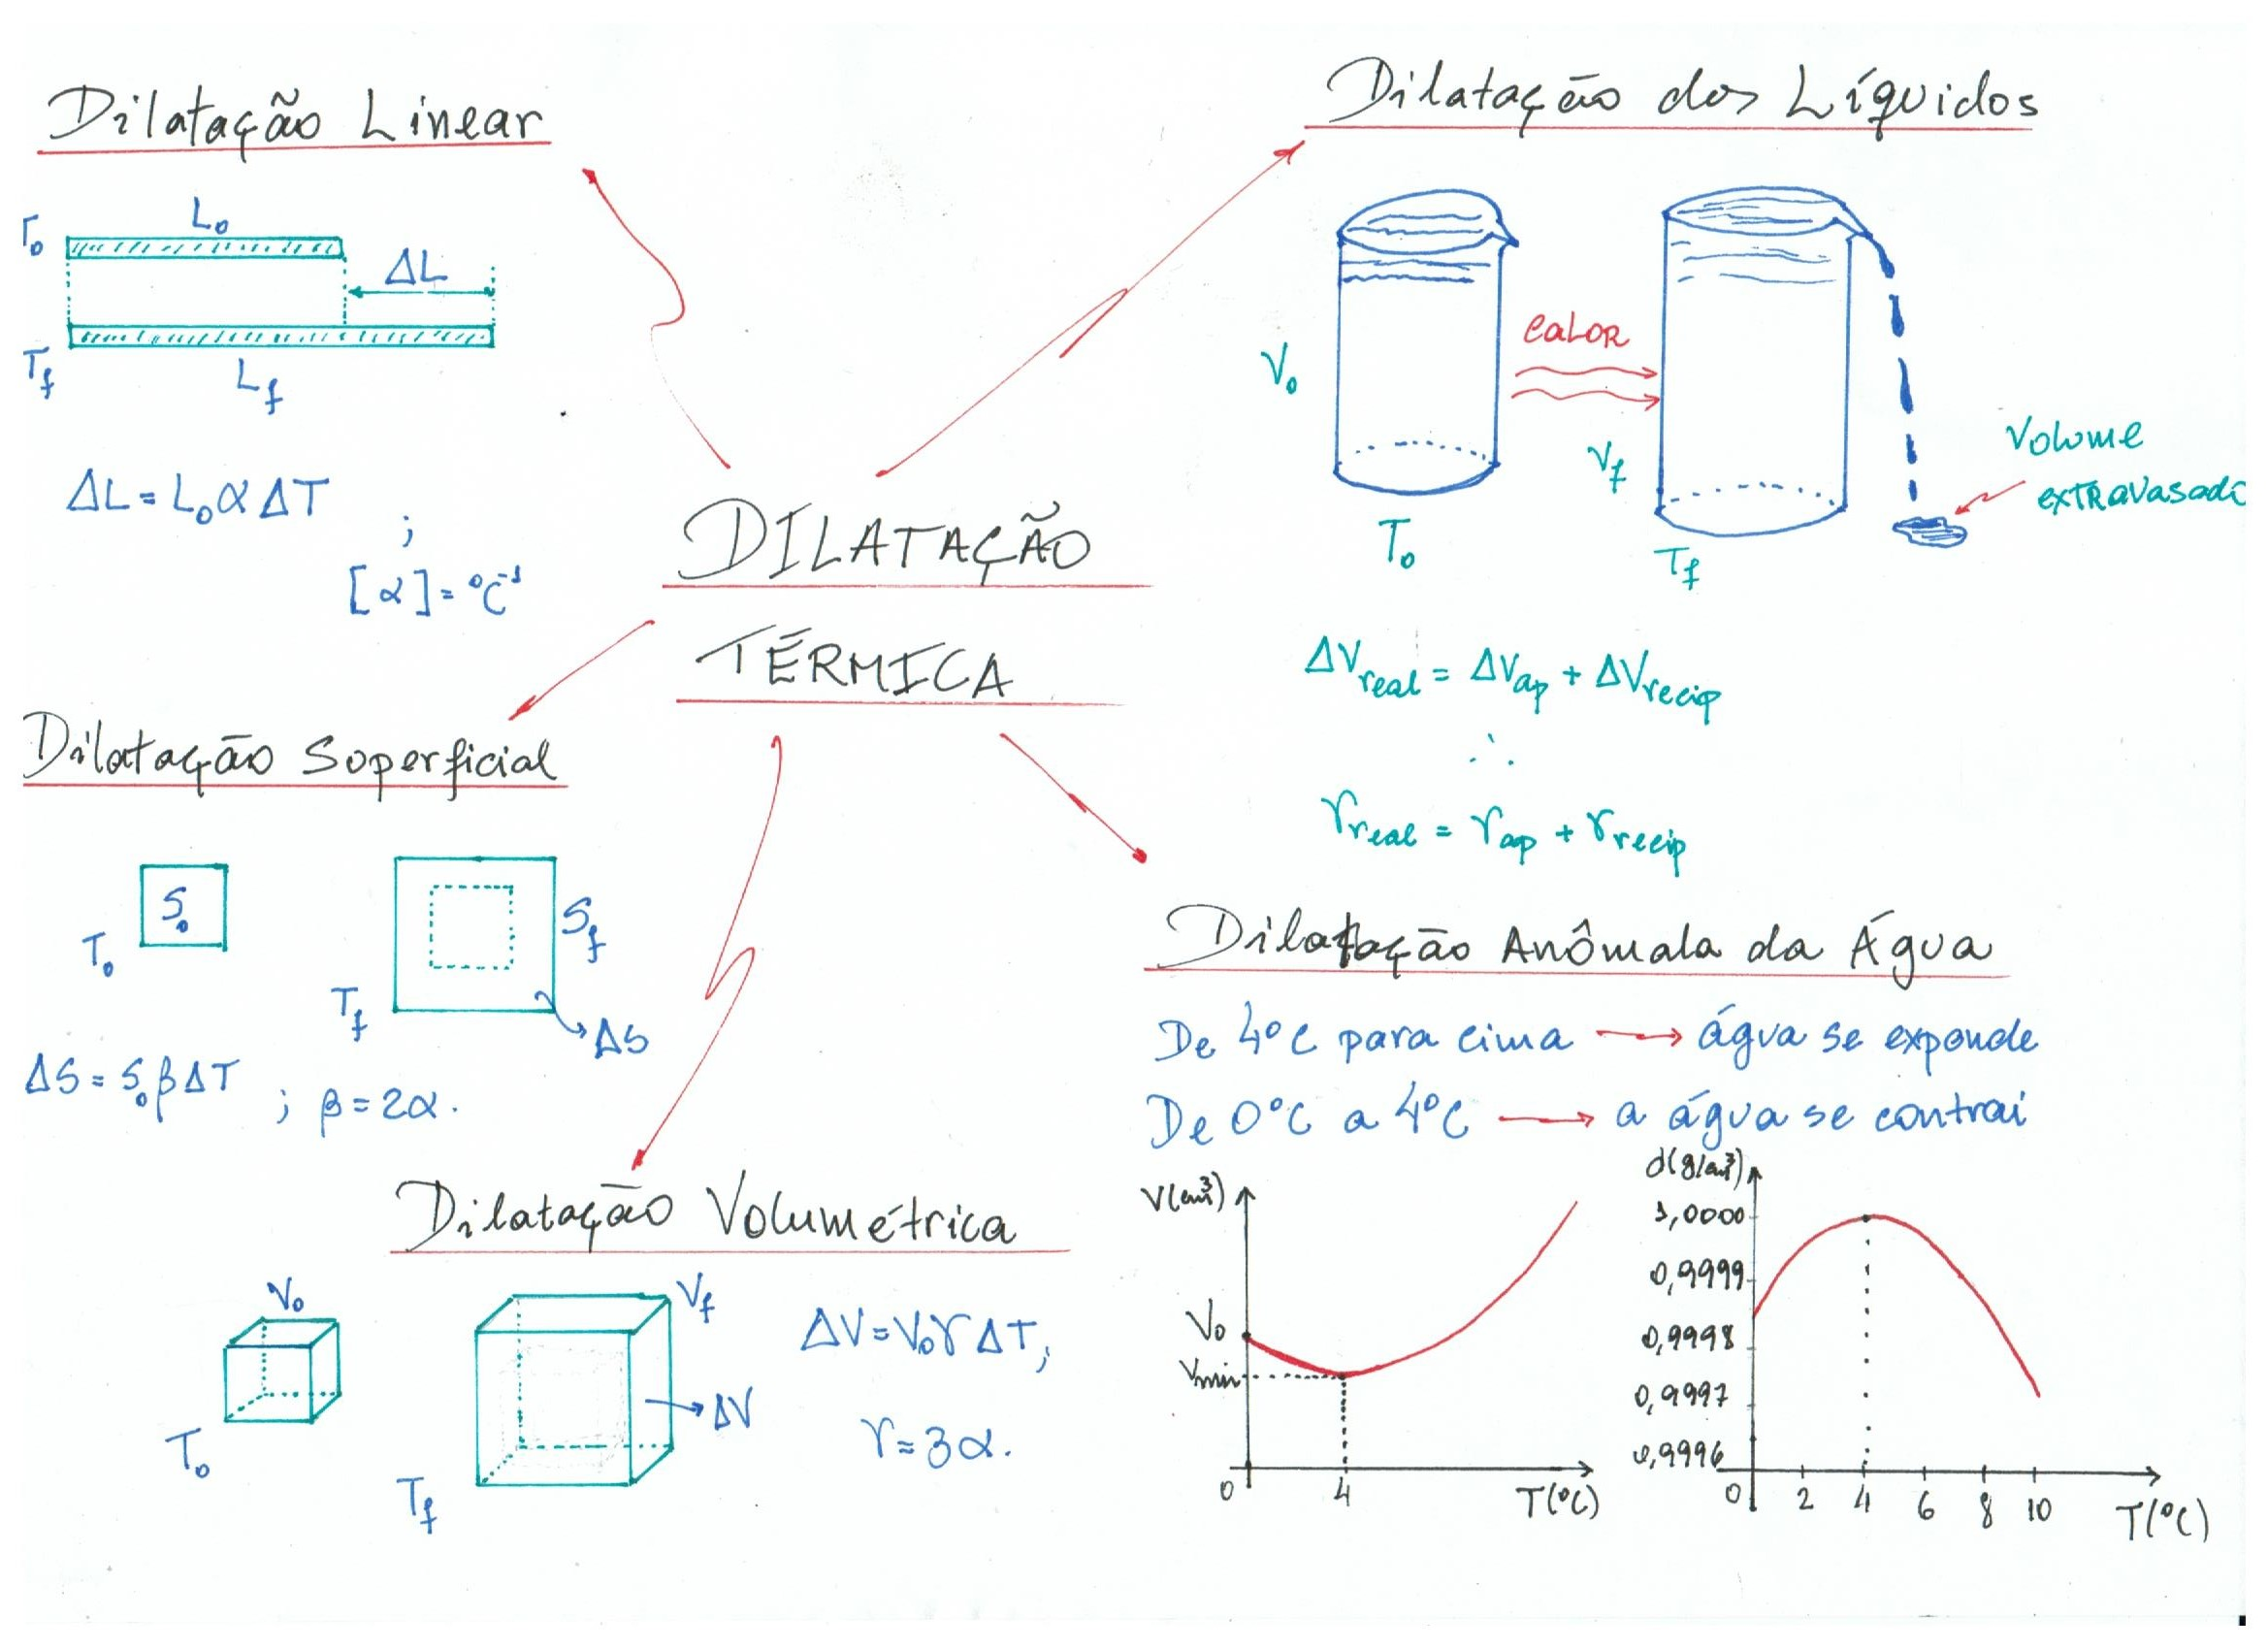 Dilatação Linear
T₀
L₀
ΔL
T_f
L_f
ΔL = L₀ α ΔT
;
[α] = °C⁻¹
Dilatação dos Líquidos
V₀
T₀
CALOR
V_f
T_f
Volume
extravasado
ΔV_real = ΔV_ap + ΔV_recip
∴
γ_real = γ_ap + γ_recip
DILATAÇÃO
TÉRMICA
Dilatação Superficial
T₀
S₀
T_f
S_f
ΔS
ΔS = S₀ β ΔT ; β = 2α.
Dilatação Volumétrica
V₀
T₀
V_f
T_f
ΔV
ΔV = V₀ γ ΔT;
γ = 3α.
Dilatação Anômala da Água
De 4°C para cima → água se expande
De 0°C a 4°C → a água se contrai
V(cm³)
V₀
Vmin
0
4
T(°C)
d(g/cm³)
1,0000
0,9999
0,9998
0,9997
0,9996
0 2 4 6 8 10
T(°C)